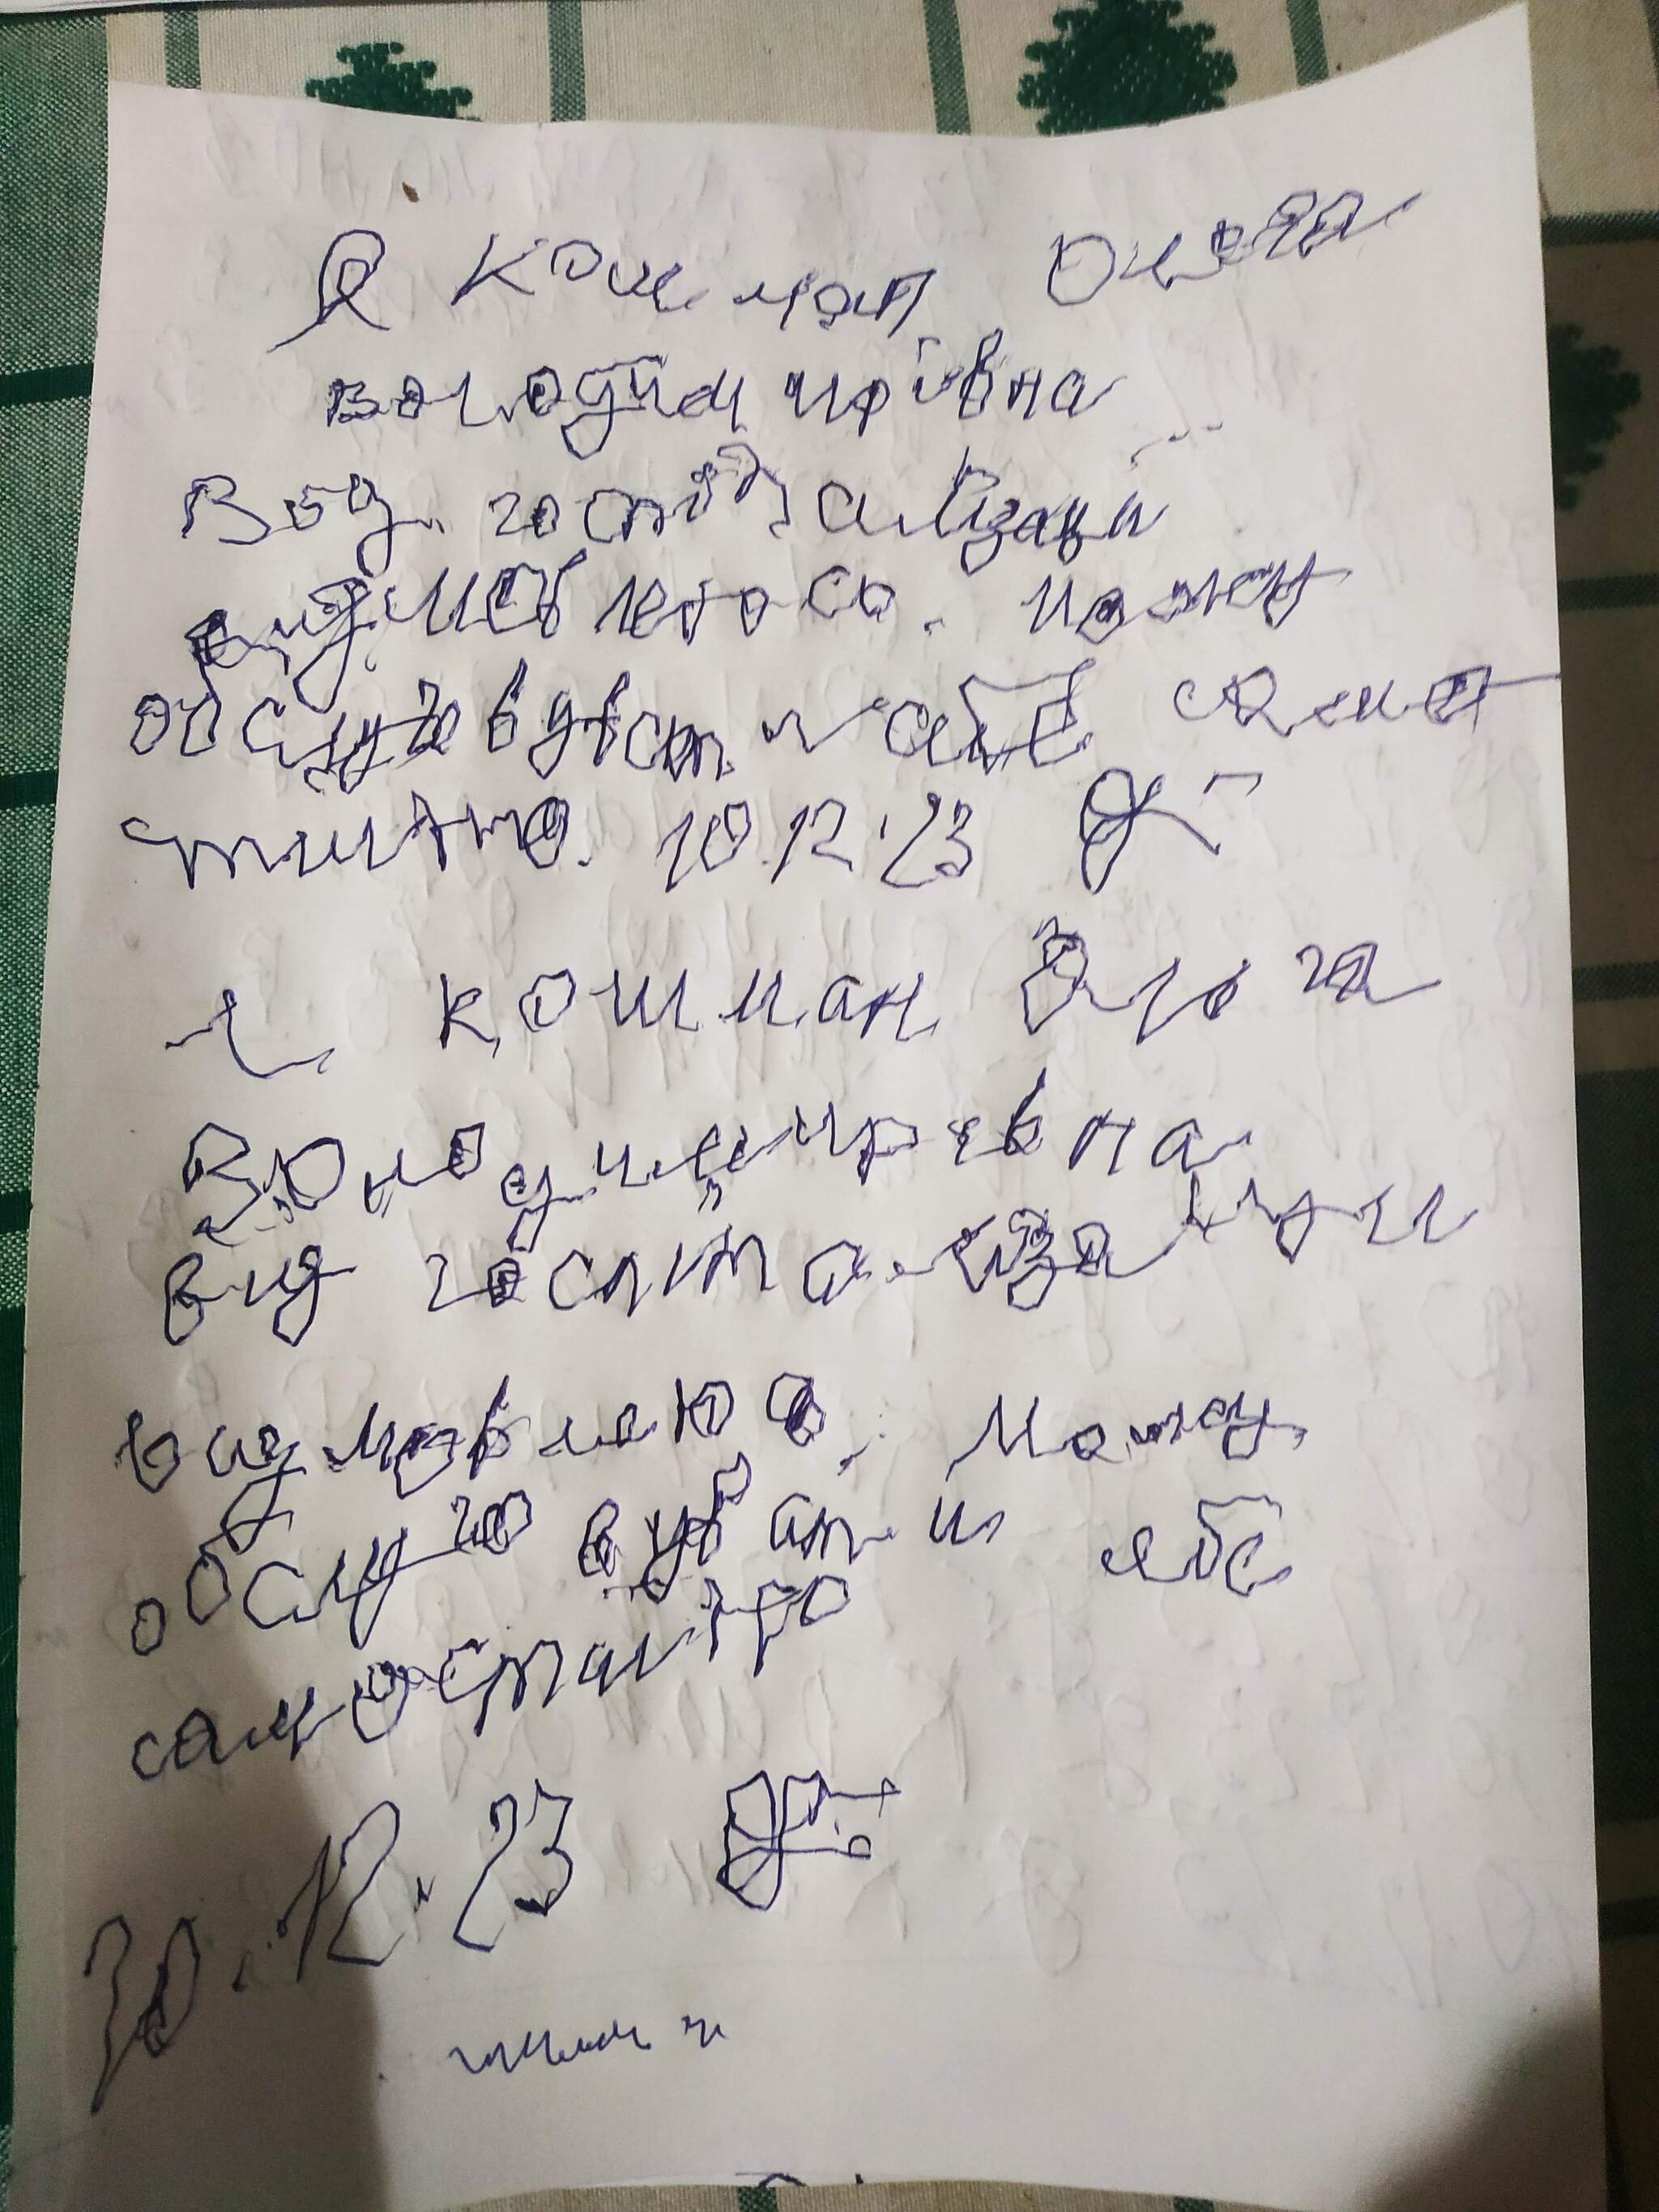 Я Кошман Ольга
володимирівна
Від госпіталізації
відмовляюсь. можу
обслуговувати себе само
стійно. 10.12.23
Я Кошман Ольга
Володимирівна
від госпіталізації
відмовляюся. Можу
обслуговувати себе
самостійно
10.12.23